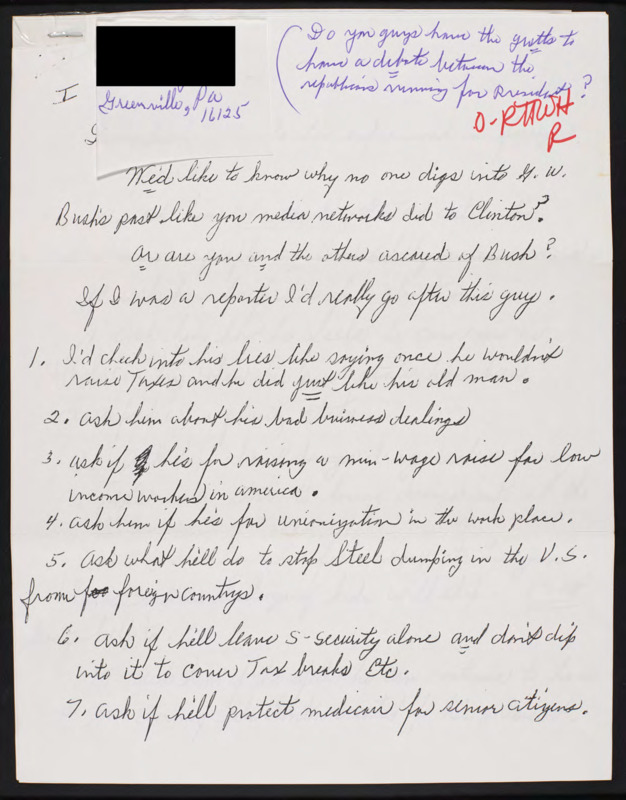 Greenville, Pa
16125
Do you guys have the gutts to
have a debate between the
republicans running for President?
O-RTTWH
R
I
We'd like to know why no one digs into G. W.
Bush's past like you media networks did to Clinton?
Or are you and the others ascared of Bush?
If I was a reporter I'd really go after this guy.
1. I'd check into his lies like saying once he wouldn't
raise Taxes and he did just like his old man.
2. ask him about his bad buisness dealings
3. ask if he's for raising a min-wage raise for low
income workers in america.
4. ask him if he's for unionization in the work place.
5. ask what he'll do to stop Steel dumping in the U.S.
from foreign countrys.
6. ask if he'll leave S-security alone and don't dip
into it to cover Tax breaks Etc.
7. ask if he'll protect medicair for senior citizens.